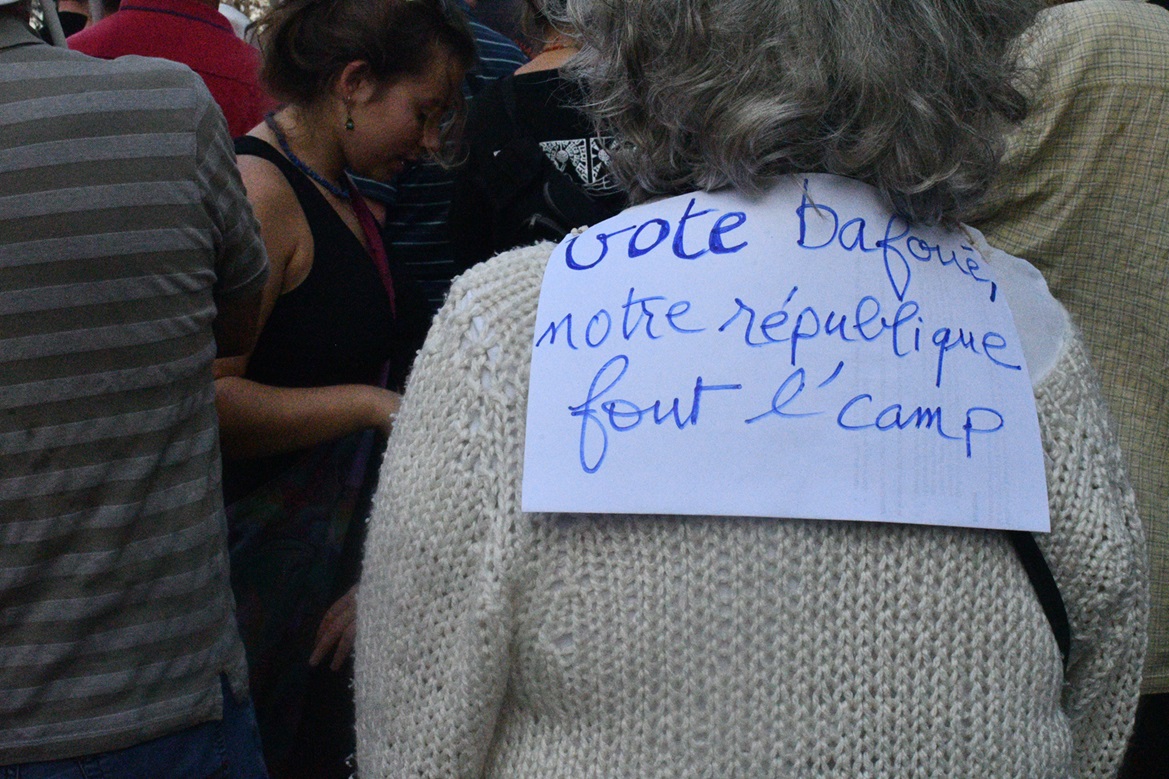 vote Bafoué,
notre république
fout l'camp